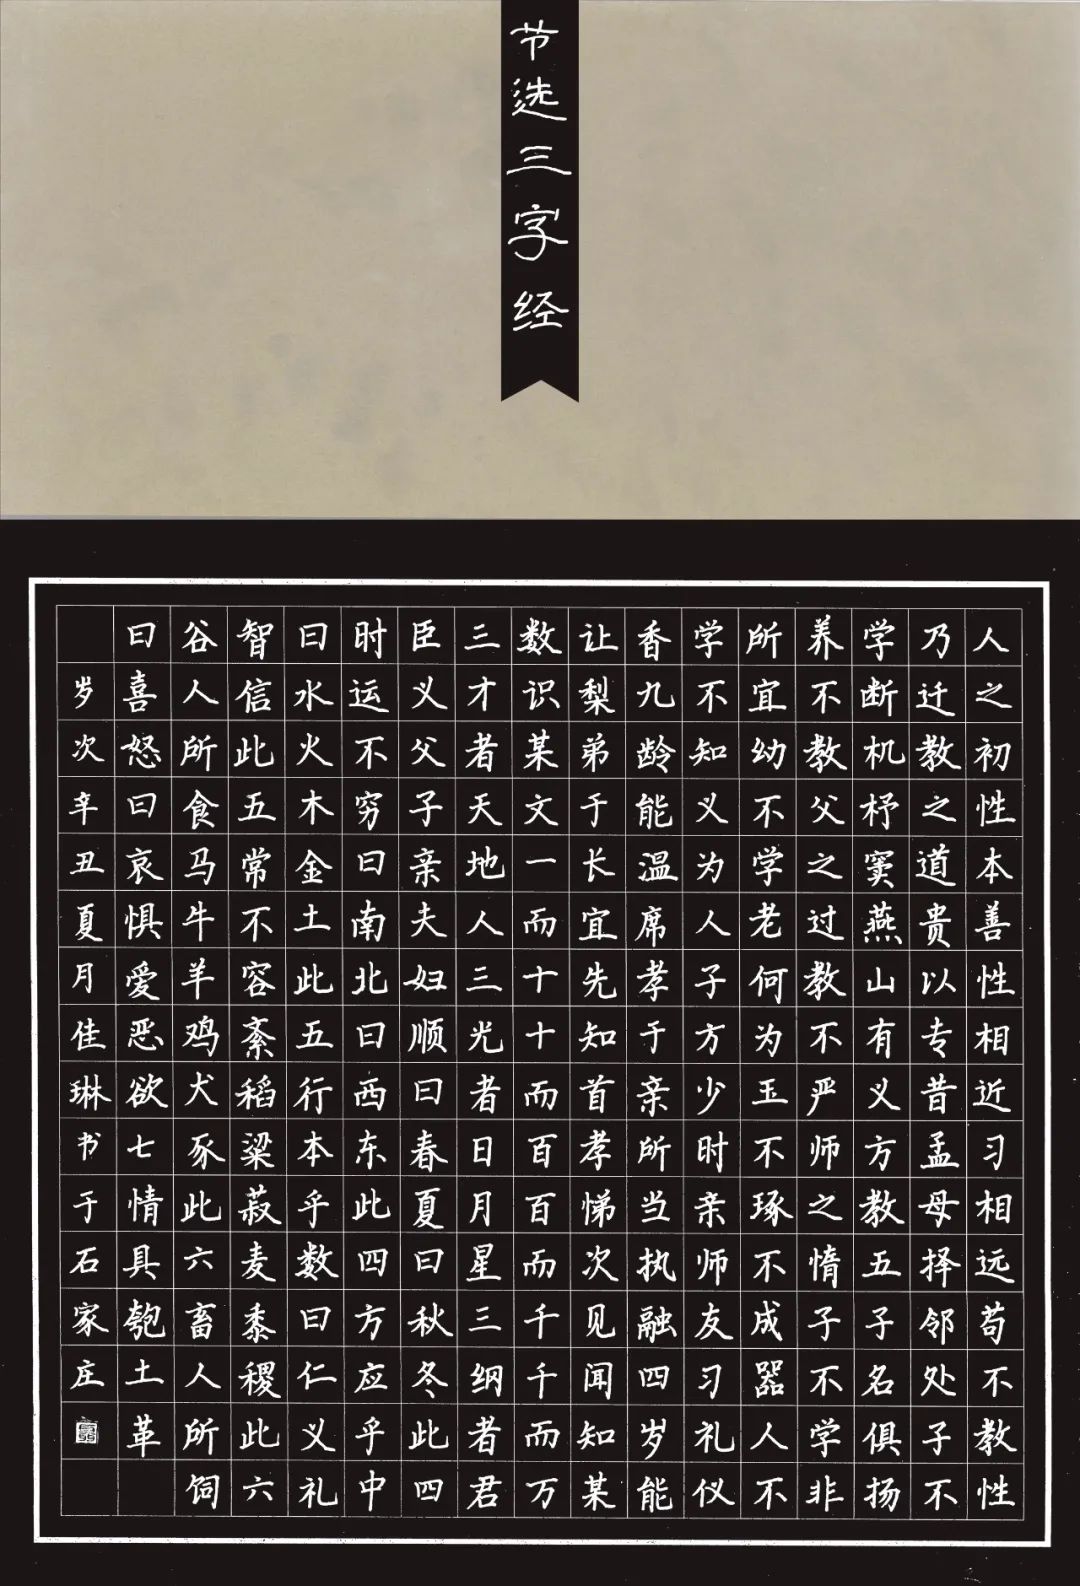 节选三字经
人之初性本善性相近习相远苟不教性
乃迁教之道贵以专昔孟母择邻处子不
学断机杼窦燕山有义方教五子名俱扬
养不教父之过教不严师之惰子不学非
所宜幼不学老何为玉不琢不成器人不
学不知义为人子方少时亲师友习礼仪
香九龄能温席孝于亲所当执融四岁能
让梨弟于长宜先知首孝悌次见闻知某
数识某文一而十十而百百而千千而万
三才者天地人三光者日月星三纲者君
臣义父子亲夫妇顺曰春夏曰秋冬此四
时运不穷曰南北曰西东此四方应乎中
曰水火木金土此五行本乎数曰仁义礼
智信此五常不容紊稻粱菽麦黍稷此六
谷人所食马牛羊鸡犬豕此六畜人所饲
曰喜怒曰哀惧爱恶欲七情具匏土革
岁次辛丑夏月佳琳书于石家庄